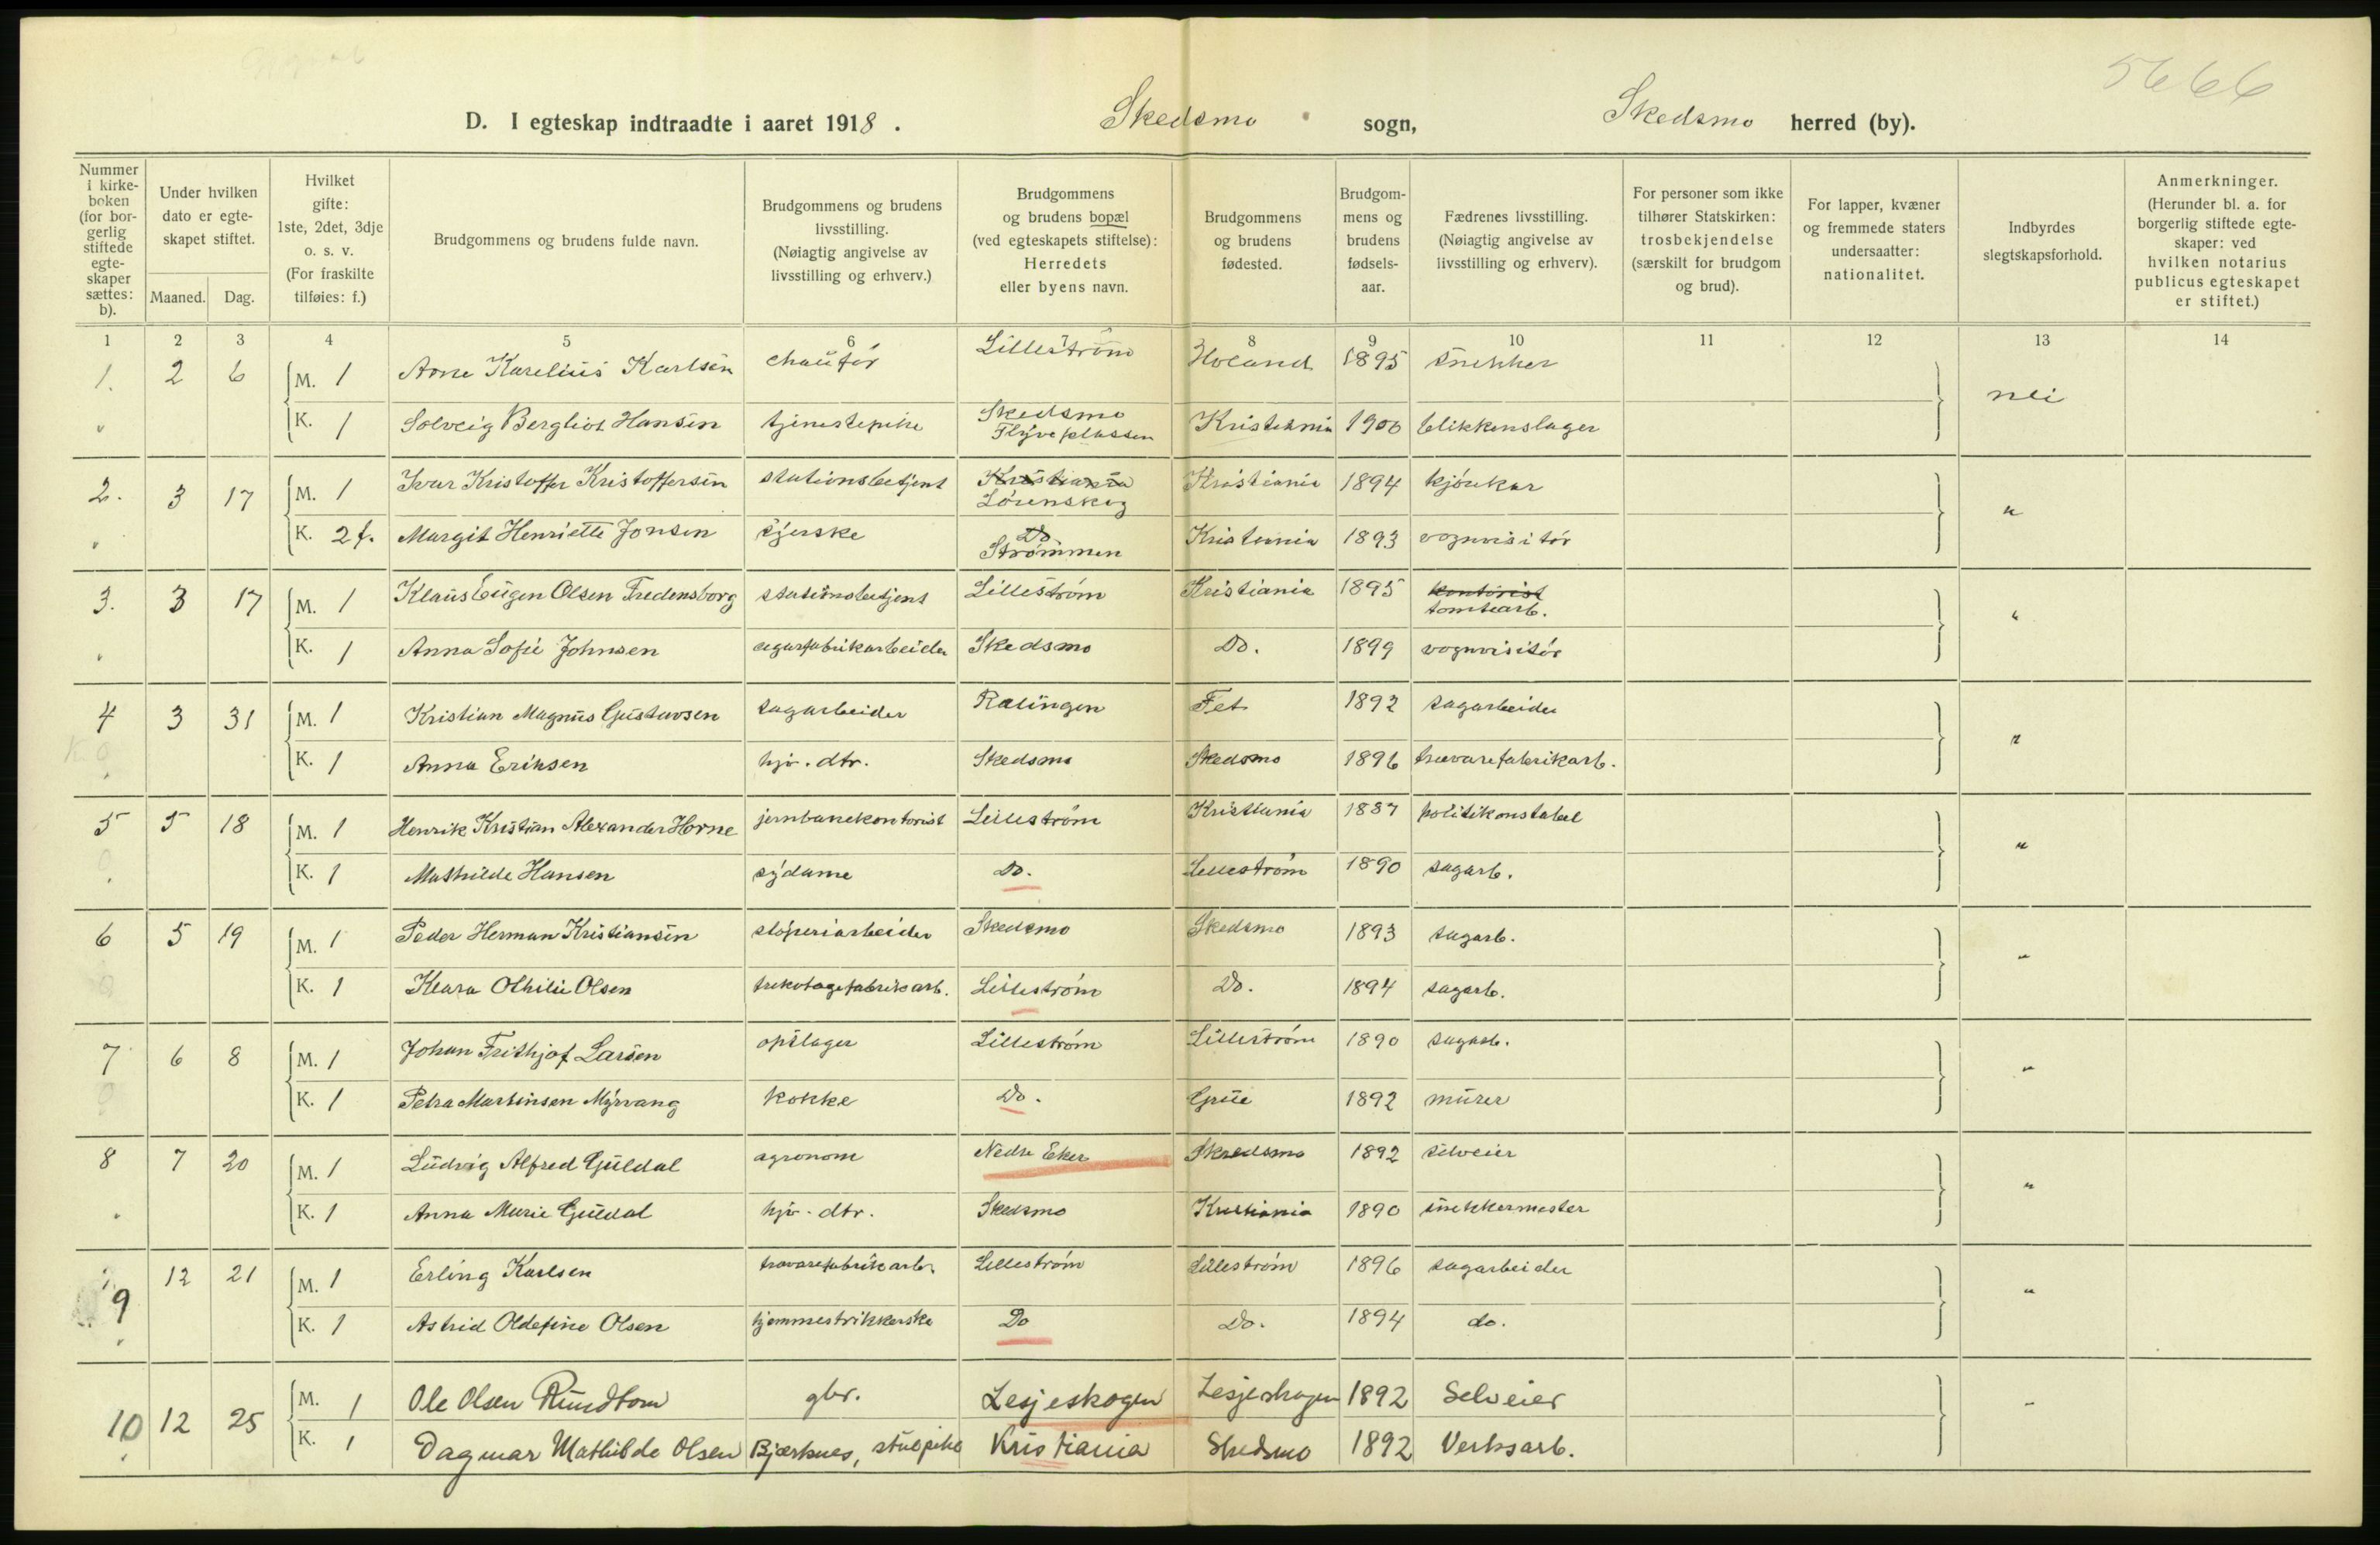 5666
D. I egteskap indtraadte i aaret 1918. Skedsmo sogn, Skedsmo herred (by).
Nummer i kirkeboken (for borgerlig stiftede egteskaper sættes: b).
Under hvilken dato er egteskapet stiftet.
Maaned. Dag.
Hvilket gifte: 1ste, 2det, 3dje o. s. v. (For fraskilte tilføies: f.)
Brudgommens og brudens fulde navn.
Brudgommens og brudens livsstilling. (Nøiagtig angivelse av livsstilling og erhverv.)
Brudgommens og brudens bopæl (ved egteskapets stiftelse): Herredets eller byens navn.
Brudgommens og brudens fødested.
Brudgommens og brudens fødselsaar.
Fædrenes livsstilling. (Nøiagtig angivelse av livsstilling og erhverv).
For personer som ikke tilhører Statskirken: trosbekjendelse (særskilt for brudgom og brud).
For lapper, kvæner og fremmede staters undersaatter: nationalitet.
Indbyrdes slegtskapsforhold.
Anmerkninger. (Herunder bl. a. for borgerlig stiftede egteskaper: ved hvilken notarius publicus egteskapet er stiftet.)
1 2 3 4 5 6 7 8 9 10 11 12 13 14
1. 2 6 M. 1 Arne Karelius Karlsen chaufør Lillestrøm Høland 1895 snekker nei
" K. 1 Solveig Bergliot Hansen tjenestepike Skedsmo Flyveplassen Kristiania 1900 blikkenslager
2. 3 17 M. 1 Ivar Kristoffer Kristoffersen stationsbetjent Kristiania Lørenskog Kristiania 1894 kjøukar "
" K. 2 f. Margit Henriette Jonsen sjerske Do Strømmen Kristiania 1893 vognvisitør
3. 3 17 M. 1 Klaus Eugen Olsen Fredensborg stationsbetjent Lillestrøm Kristiania 1895 kontorist tomtearb. "
" K. 1 Anna Sofie Johnsen cigarfabrikarbeider Skedsmo Do. 1899 vognvisitør
4 3 31 M. 1 Kristian Magnus Gustavsen sagarbeider Rælingen Fet 1892 sagarbeider "
" K. 1 Anna Eriksen hjv. dtr. Skedsmo Skedsmo 1896 trævarefabrikarb.
5 5 18 M. 1 Henrik Kristian Alexander Horne jernbanekontorist Lillestrøm Kristiania 1887 politikonstabel "
" K. 1 Mathilde Hansen sydame Do. Lillestrøm 1890 sagarb.
6 5 19 M. 1 Peder Herman Kristiansen støperiarbeider Skedsmo Skedsmo 1893 sagarb. "
K. 1 Klara Othilie Olsen trikotagefabrikarb. Lillestrøm Do. 1894 sagarb.
7 6 8 M. 1 Johan Frithjof Larsen opslager Lillestrøm Lillestrøm 1890 sagarb. "
K. 1 Petra Martinsen Myrvang kokke Do. Grue 1892 murer
8 7 20 M. 1 Ludvig Alfred Guldal agronom Nedre Eker Skedsmo 1892 selveier "
" K. 1 Anna Marie Guldal hjv. dtr. Skedsmo Kristiania 1890 snekkermester
9 12 21 M. 1 Erling Karlsen trævarefabrikarb. Lillestrøm Lillestrøm 1896 sagarbeider "
" K. 1 Astrid Oldefine Olsen hjemmestrikkerske Do Do. 1894 do.
10 12 25 M. 1 Ole Olsen Rundtom gbr. Lesjeskogen Lesjeskogen 1892 Selveier -
" K. 1 Dagmar Mathilde Olsen Bjerknes, stuepike Kristiania Skedsmo 1892 Verksarb.